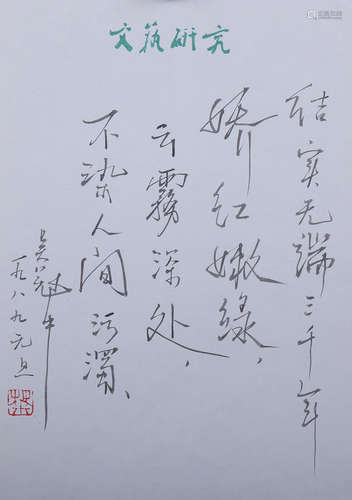 文艺研究
结实无端三千年
娇红嫩绿，
云霧深处，
不染人间污濁、
吴冠中
一九八九元旦